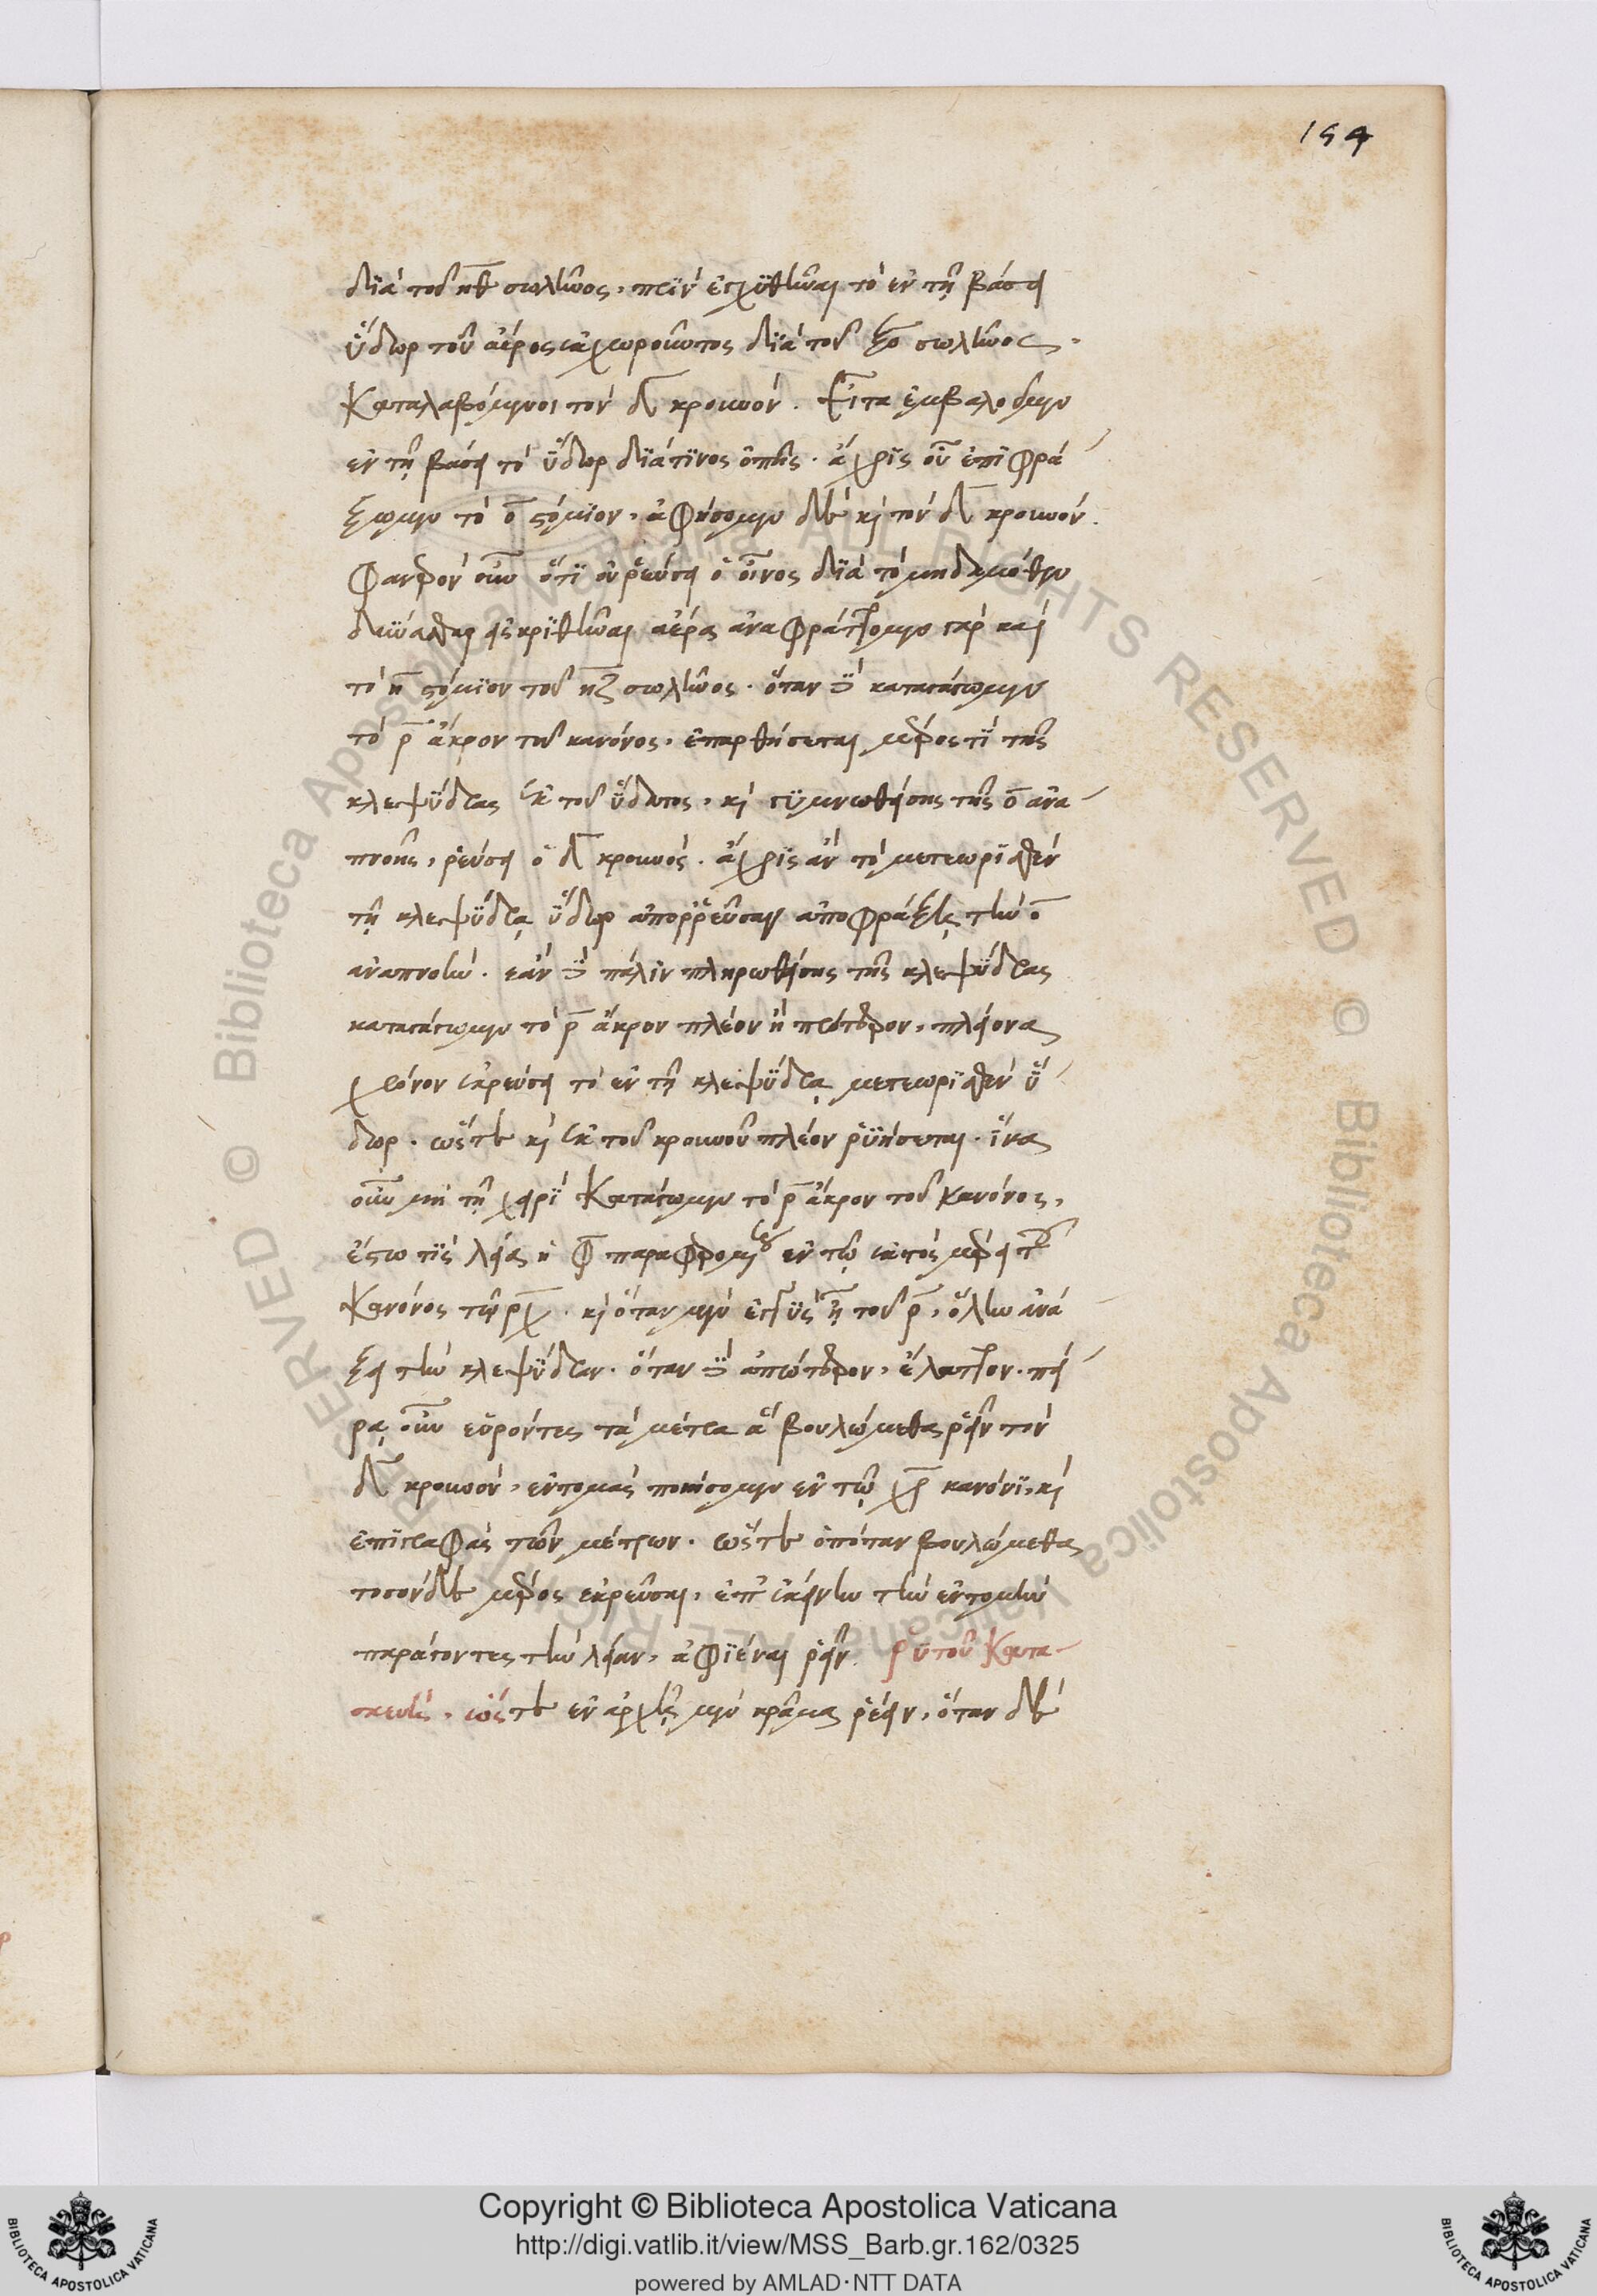 154
διὰ τοῦ ηθ σωλῆνος, πρὶν ἐγχυθῆναι τὸ ἐν τῇ βάσει
ὕδωρ τοῦ ἀέρος ἐκχωροῦντος διὰ τοῦ ξο σωλῆνος.
καταλαβόμενοι τὸν λ κρουνόν. εἶτα ἐμβαλοῦμεν
ἐν τῇ βάσει τὸ ὕδωρ διά τινος ὀπῆς. ἄχρις οὗ ἐπιφρά
ξωμεν τὸ ο στόμιον, ἀφήσομεν δὲ καὶ τὸν λ κρουνόν.
Φανερὸν οὖν ὅτι οὐ ῥεύσει ὁ οἶνος διὰ τὸ μηδαμόθεν
δύνασθαι εἰσκριθῆναι ἀέρα ἀναφράττομεν γὰρ καὶ
τὸ η στόμιον τοῦ ηζ σωλῆνος. ὅταν δὲ κατάγωμεν
τὸ ρ ἄκρον τοῦ κανόνος, ἐπαρθήσεται μέρος τι τῆς
κλεψύδρας ἐκ τοῦ ὕδατος, καὶ γυμνωθείσης τῆς ο ἀνα
πνοῆς, ῥεύσει ὁ λ κρουνός. ἄχρις ἂν τὸ μετεωρισθὲν
τῇ κλεψύδρᾳ ὕδωρ ἀπορρεῦσαν ἀποφράξῃ τὴν ο
ἀναπνοήν. ἐὰν δὲ πάλιν πληρωθείσης τῆς κλεψύδρας
κατάγωμεν τὸ ρ ἄκρον πλέον ἢ πρότερον, πλείονα
χρόνον ἐκρεύσει τὸ ἐν τῇ κλεψύδρᾳ μετεωρισθὲν ὕ
δωρ. ὥστε καὶ ἐκ τοῦ κρουνοῦ πλέον ῥυήσεται. ἵνα
οὖν μὴ τῇ χειρὶ κατάγωμεν τὸ ρ ἄκρον τοῦ κανόνος,
ἔστω τις λεία ἡ φ παραφερομένη ἐν τῷ ἐκτὸς μέρει τοῦ
κανόνος τῷ ρχ. καὶ ὅταν μὲν ἐγγὺς ᾖ τοῦ ρ, ὅλην ἀνά
ξει τὴν κλεψύδραν. ὅταν δὲ ἀπώτερον, ἔλαττον. πεί
ρᾳ οὖν εὑρόντες τὰ μέτρα ἃ βουλώμεθα ῥεῖν τὸν
λ κρουνόν, ἐντομὰς ποιήσομεν ἐν τῷ χρ κανόνι, καὶ
ἐπιγραφὰς τῶν μέτρων. ὥστε ὁπόταν βουλώμεθα
τοσόνδε μέρος ἐκρεῦσαι, ἐπ' ἐκείνην τὴν ἐντομὴν
παράγοντες τὴν λείαν, ἀφιέναι ῥεῖν. ῥυτοῦ κατα
σκευή, ὥστε ἐν ἀρχῇ μὲν κρᾶμα ῥέειν, ὅταν δὲ
Copyright © Biblioteca Apostolica Vaticana
http://digi.vatlib.it/view/MSS_Barb.gr.162/0325
powered by AMLAD·NTT DATA